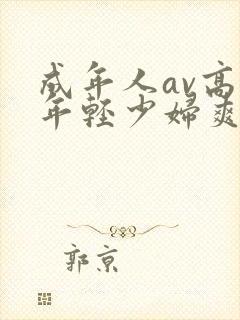 成年人av高
年轻少婦爽
郭京